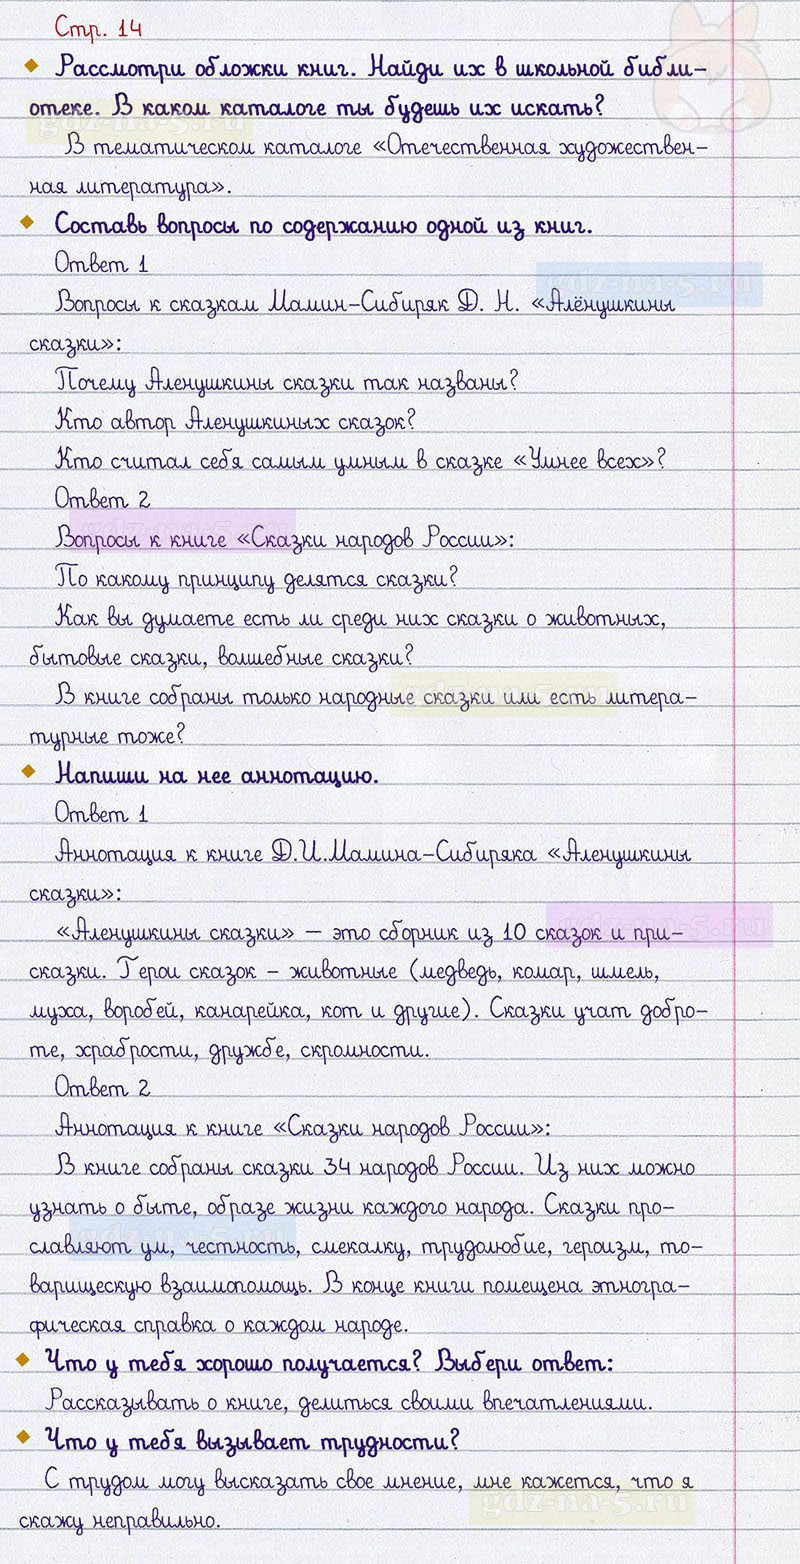 Стр. 14
Рассмотри обложки книг. Найди их в школьной библи-
отеке. В каком каталоге ты будешь их искать?
В тематическом каталоге «Отечественная художествен-
ная литература».
Составь вопросы по содержанию одной из книг.
Ответ 1
gdz-na-5.ru
Вопросы к сказкам Мамин-Сибиряк Д. Н. «Алёнушкины
сказки»:
Почему Аленушкины сказки так названы?
Кто автор Аленушкиных сказок?
Кто считал себя самым умным в сказке «Умнее всех»?
Ответ 2
gdz-na-5.ru
Вопросы к книге «Сказки народов России»:
По какому принципу делятся сказки?
Как вы думаете есть ли среди них сказки о животных,
бытовые сказки, волшебные сказки?
В книге собраны только народные сказки или есть литера-
турные тоже?
Напиши на нее аннотацию.
Ответ 1
Аннотация к книге Д.И.Мамина-Сибиряка «Аленушкины
сказки»:
gdz-na-5.ru
«Аленушкины сказки» — это сборник из 10 сказок и при-
сказки. Герои сказок - животные (медведь, комар, шмель,
муха, воробей, канарейка, кот и другие). Сказки учат добро-
те, храбрости, дружбе, скромности.
Ответ 2
Аннотация к книге «Сказки народов России»:
В книге собраны сказки 34 народов России. Из них можно
узнать о быте, образе жизни каждого народа. Сказки про-
славляют ум, честность, смекалку, трудолюбие, героизм, то-
варищескую взаимопомощь. В конце книги помещена этногра-
фическая справка о каждом народе.
Что у тебя хорошо получается? Выбери ответ:
Рассказывать о книге, делиться своими впечатлениями.
Что у тебя вызывает трудности?
С трудом могу высказать свое мнение, мне кажется, что я
gdz-na-5.ru
скажу неправильно.